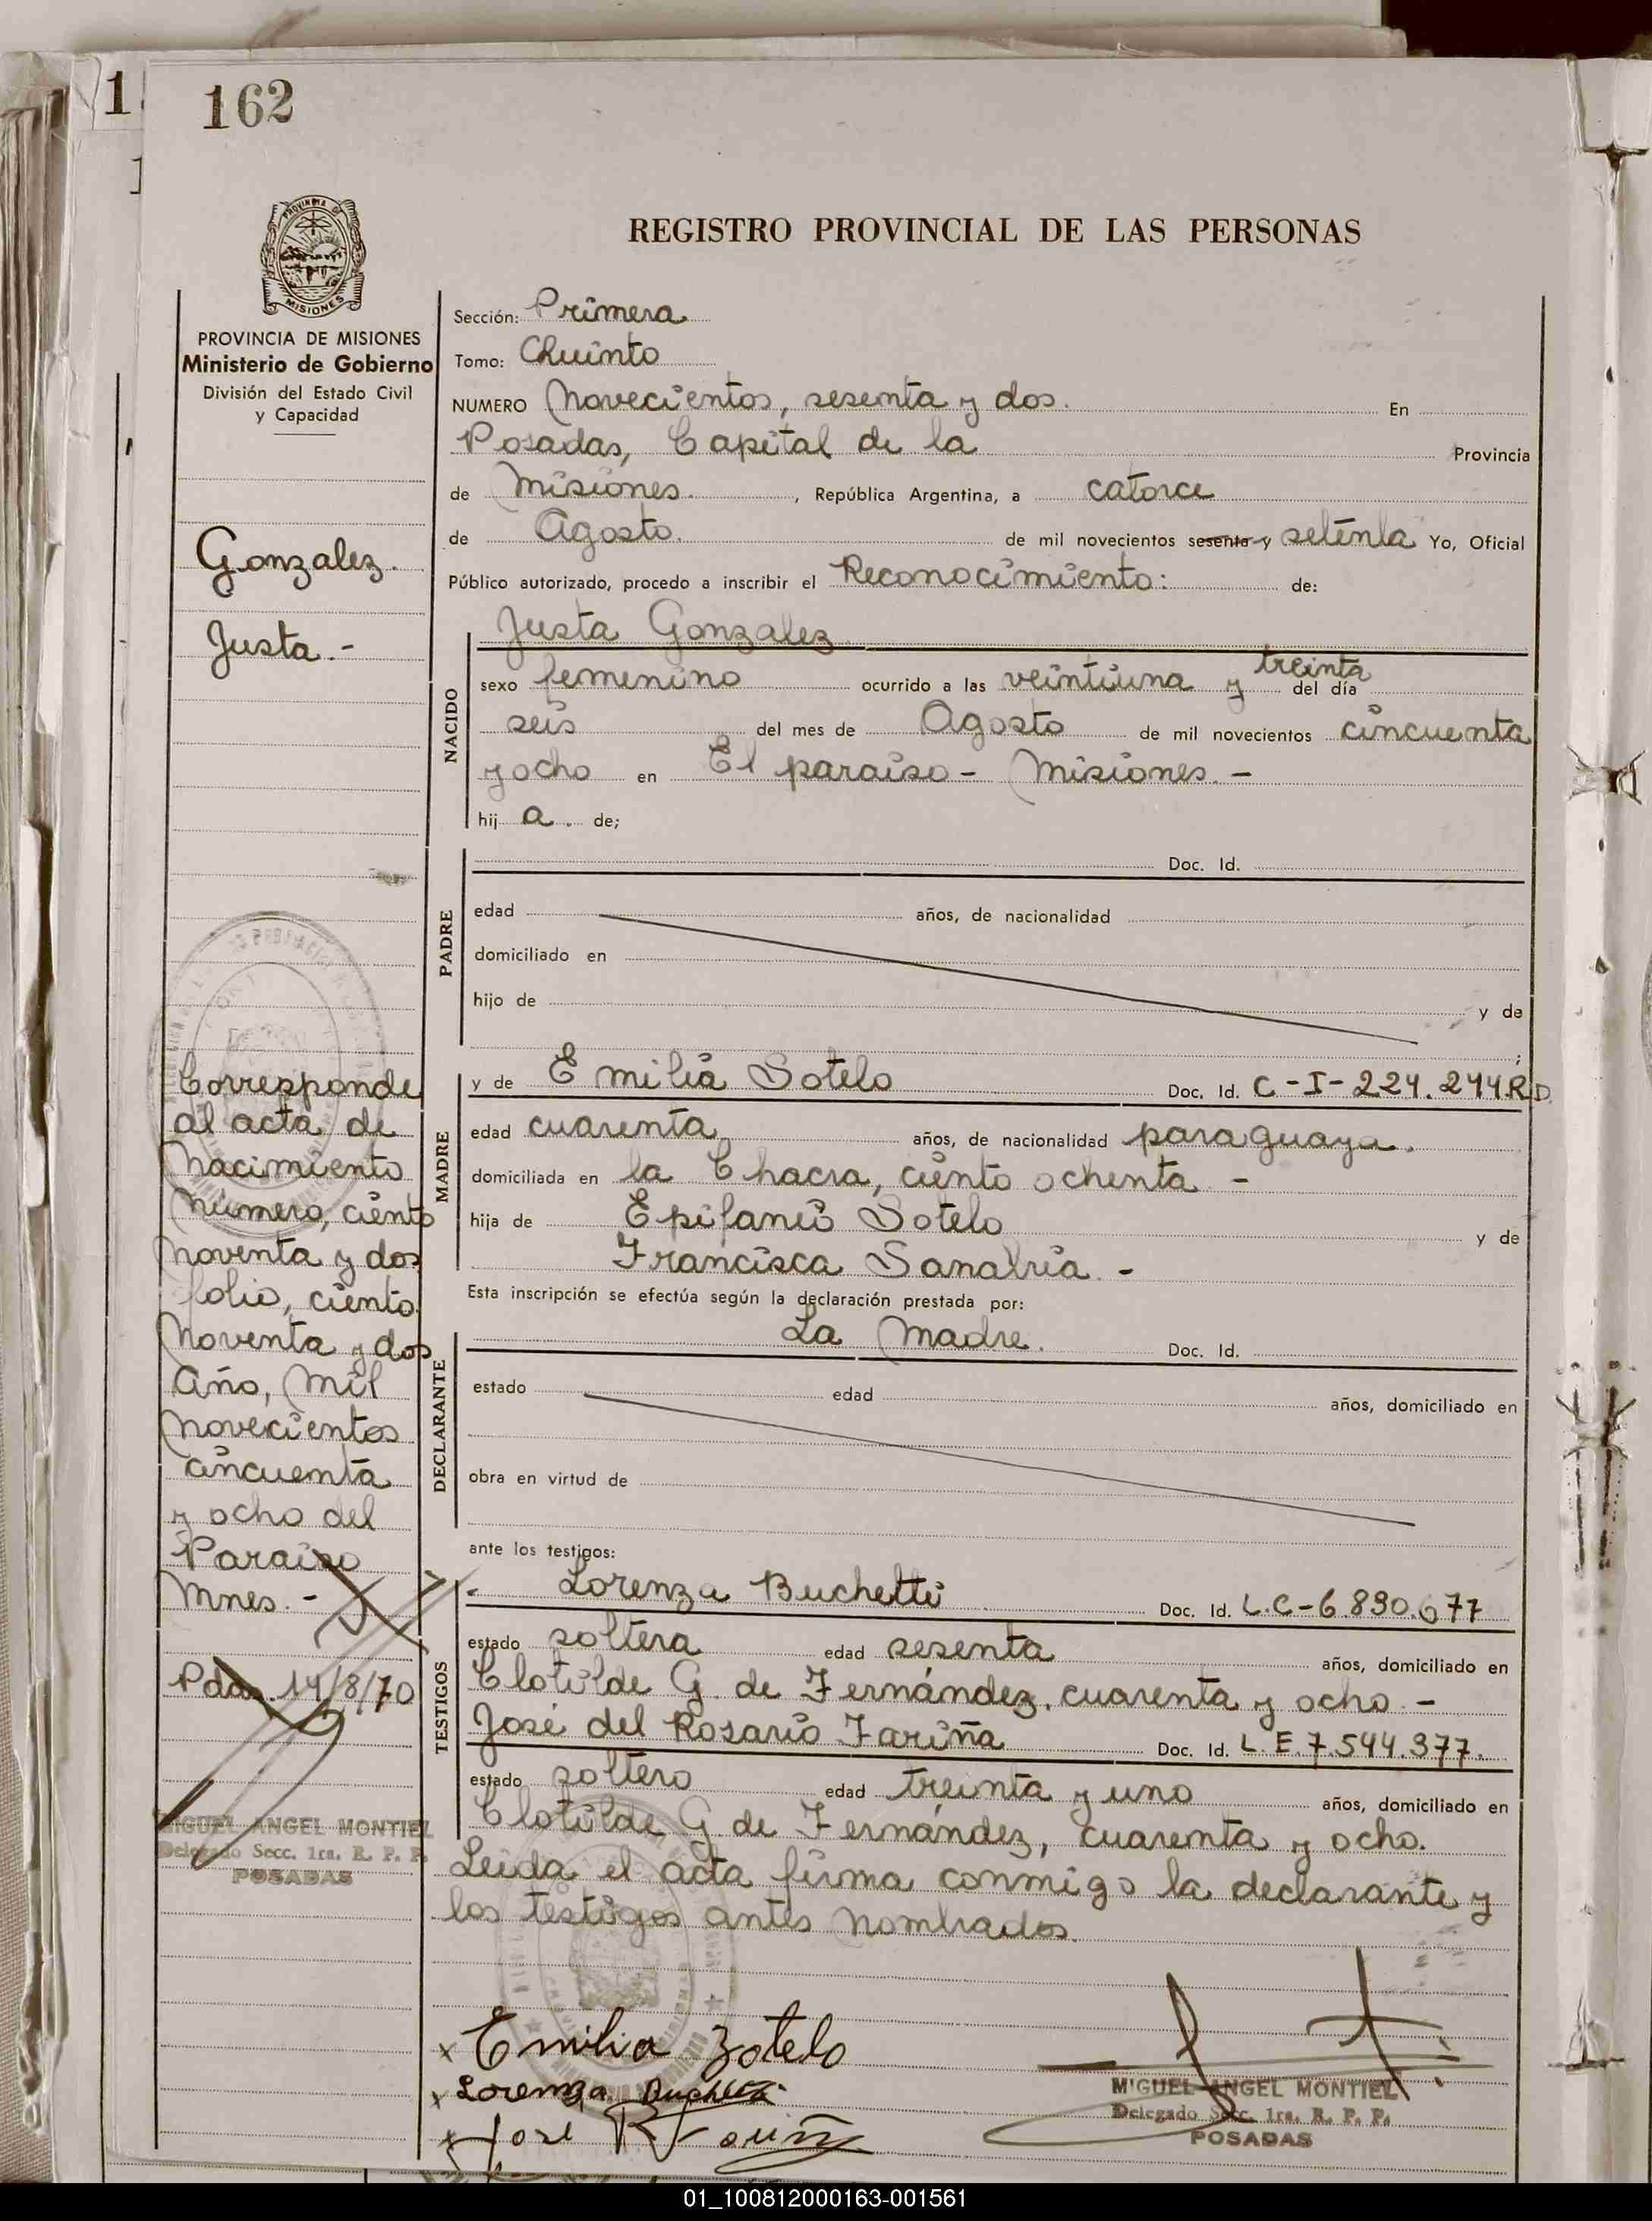 162
REGISTRO PROVINCIAL DE LAS PERSONAS
MISIONES
PROVINCIA DE MISIONES
Ministerio de Gobierno
División del Estado Civil
y Capacidad
Gonzalez.
Justa.-
Corresponde
al acta de
Nacimiento
Numero, ciento
Noventa y dos
folio, ciento
Noventa y dos
Año, Mil
Novecientos
cincuenta
y ocho del
Paraiso
Mnes. -
Pdas. 14/8/70
MIGUEL ANGEL MONTIEL
Delegado Secc. 1ra. R. P. P.
POSADAS
Sección: Primera
Tomo: Quinto
NUMERO Novecientos, sesenta y dos. En
Posadas, Capital de la Provincia
de Misiones. , República Argentina, a catorce
de Agosto. de mil novecientos sesenta y setenta Yo, Oficial
Público autorizado, procedo a inscribir el Reconocimiento: de:
Justa Gonzalez
NACIDO
sexo femenino ocurrido a las veintiuna y treinta del día
seis del mes de Agosto de mil novecientos cincuenta
y ocho en El paraiso - Misiones. -
hij a. de;
PADRE
Doc. Id.
edad años, de nacionalidad
domiciliado en
hijo de y de
;
MADRE
y de Emilia Sotelo Doc. Id. C-I-224.244.R.D.
edad cuarenta años, de nacionalidad paraguaya.
domiciliada en la Chacra, ciento ochenta -
hija de Epifanio Sotelo y de
Francisca Sanabria. -
Esta inscripción se efectúa según la declaración prestada por:
DECLARANTE
La Madre. Doc. Id.
estado edad años, domiciliado en
obra en virtud de
ante los testigos:
TESTIGOS
Lorenza Buchetti Doc. Id. L.C-6 830.677
estado soltera edad sesenta años, domiciliado en
Clotilde G. de Fernández, cuarenta y ocho. -
José del Rosario Fariña Doc. Id. L.E.7.544.377.
estado soltero edad treinta y uno años, domiciliado en
Clotilde G. de Fernández, cuarenta y ocho.
Leida el acta firma conmigo la declarante y
los testigos antes nombrados.
x Emilia Zotelo
x Lorenza
x José R
MIGUEL ANGEL MONTIEL
Delegado Secc. 1ra. R. P. P.
POSADAS
01_100812000163-001561